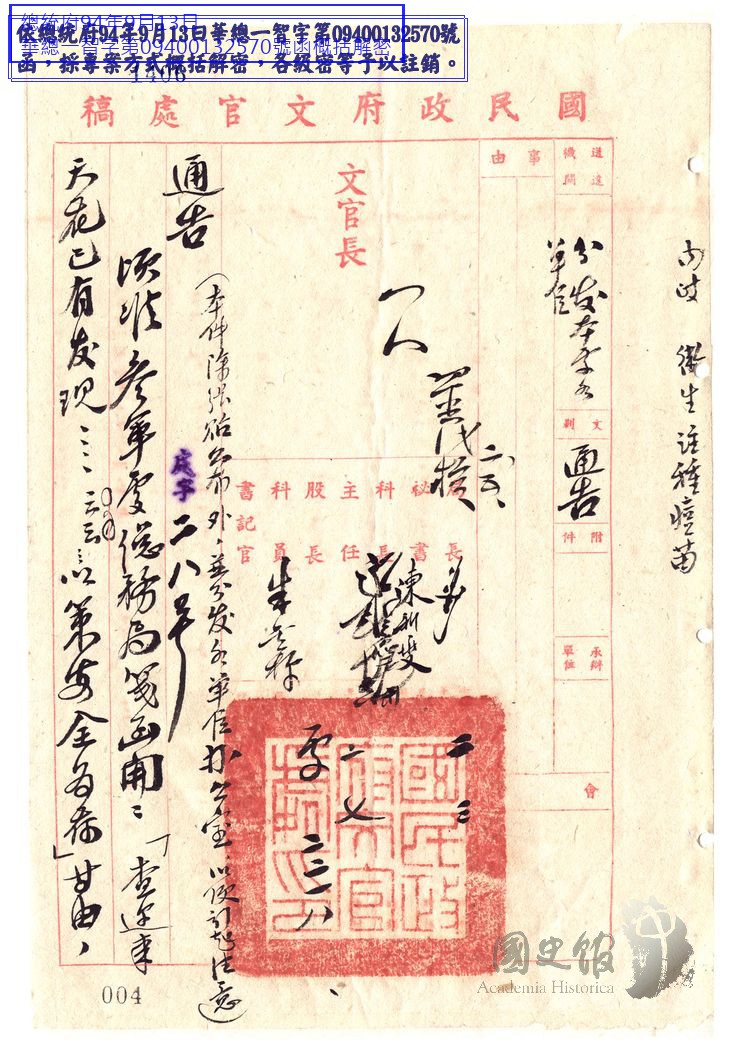 總統府94年9月13日
華總一智字第09400132570號函概括解密
依總統府94年9月13日華總一智字第09400132570號
函，採專案方式概括解密，各級密等予以註銷。
1406
國民政府文官處稿
衛生 註種痘苗
送達機關
分发本處各單位
事由
文別
通告
附件
承辦單位
會
文官長
局長
秘書
科長
主任
股長
科員
書記官
通告
（本件除張貼公布外，並分发各單位办公室，以便引起注意）
頃准參軍處總務局箋函開：「查近來
天花已有发现……云云以策安全為荷」甘由，
處字二八号
國民政府文官處印
004
國史館
Academia Historica